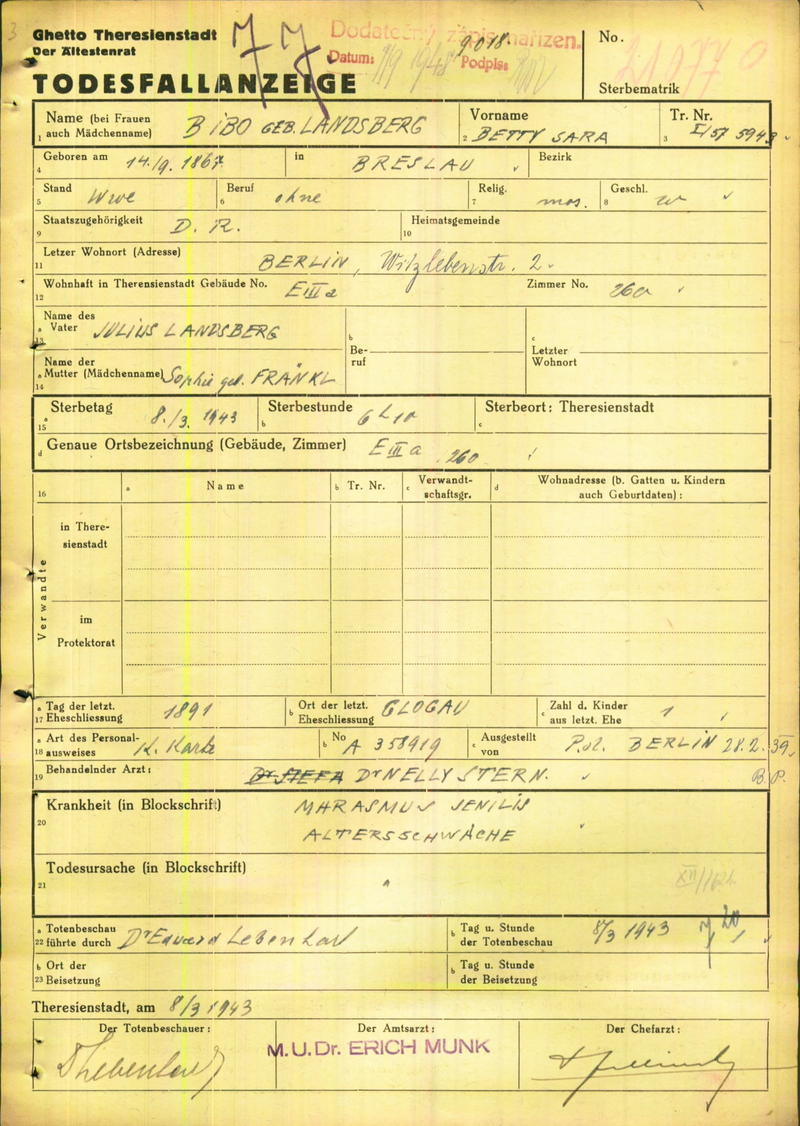 Ghetto Theresienstadt
Der Ältestenrat
TODESFALLANZEIGE
Dodatečný zápis nařízen.
Datum: 1948 9018. Podpis:
No.
21977
Sterbematrik
Name (bei Frauen auch Mädchenname) BIBO GEB. LANDSBERG
1
Vorname BETTY SARA
2
Tr. Nr. I/57 5943
3
Geboren am 14./9. 1867 in BRESLAU Bezirk
4
Stand Wwe Beruf ohne Relig. mos. Geschl. w
5 6 7 8
Staatszugehörigkeit D. R. Heimatsgemeinde
9 10
Letzer Wohnort (Adresse) BERLIN, Witzlebenstr. 2.
11
Wohnhaft in Theresienstadt Gebäude No. E III a Zimmer No. 260
12
Name des
a Vater JULIUS LANDSBERG b c
13
Name der
a Mutter (Mädchenname) Sophie geb. FRÄNKL
14
Be-
ruf
Letzter
Wohnort
Sterbetag 8./3. 1943 Sterbestunde 6 Sterbeort: Theresienstadt
a 15 b c
d Genaue Ortsbezeichnung (Gebäude, Zimmer) E III a 260
16 a Name b Tr. Nr. c Verwandt-
schaftsgr. d Wohnadresse (b. Gatten u. Kindern
auch Geburtdaten):
Verwandte
in There-
sienstadt
im
Protektorat
a Tag der letzt.
17 Eheschliessung 1891
b Ort der letzt.
Eheschliessung GLOGAU
c Zahl d. Kinder
aus letzt. Ehe 1
a Art des Personal-
18 ausweises K. Karte
b No A 358919
c Ausgestellt
von Pol. BERLIN 28.2.39.
Behandelnder Arzt: Dr NELLY STERN.
19
Krankheit (in Blockschrift) MARASMUS SENILIS
20
ALTERSSCHWÄCHE
Todesursache (in Blockschrift)
21
a Totenbeschau
22 führte durch Dr Eduard
b Tag u. Stunde
der Totenbeschau 8/3 1943 7 20
b Ort der
23 Beisetzung
b Tag u. Stunde
der Beisetzung
Theresienstadt, am 8/3 1943
Der Totenbeschauer: Der Amtsarzt: Der Chefarzt:
M.U.Dr. ERICH MUNK